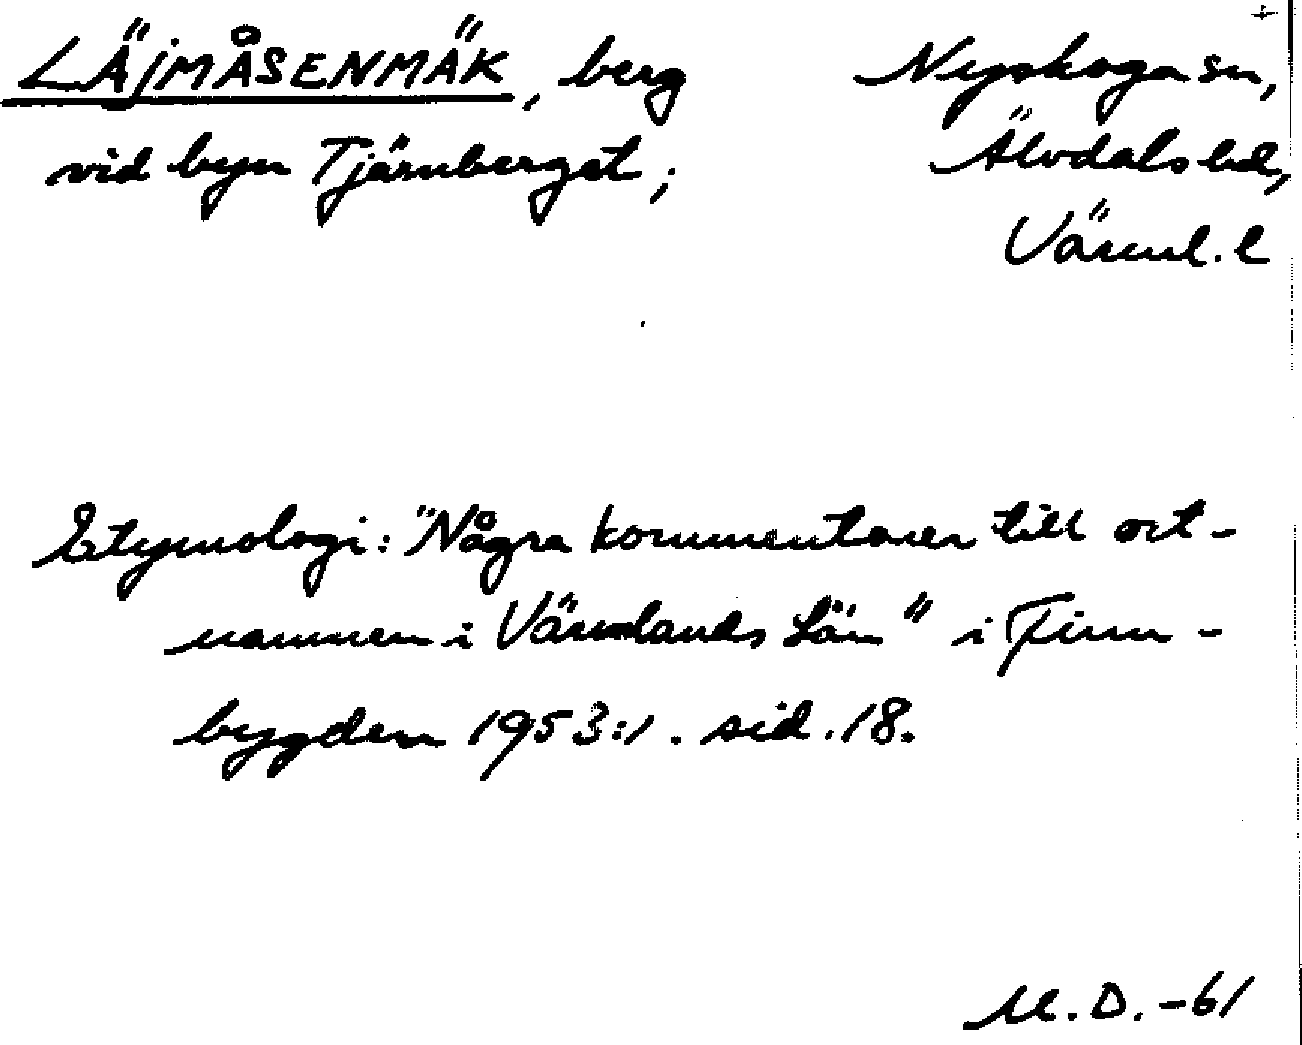 LÄJMÅSENMÄK, berg
vid byn Tjärnberget;
Nyskoga sn,
Älvdals hd,
Värml. l
Etymologi: "Några kommentarer till ort-
namnen i Värmlands län" i Finn-
bygden 1953:1. sid. 18.
M. D. -61